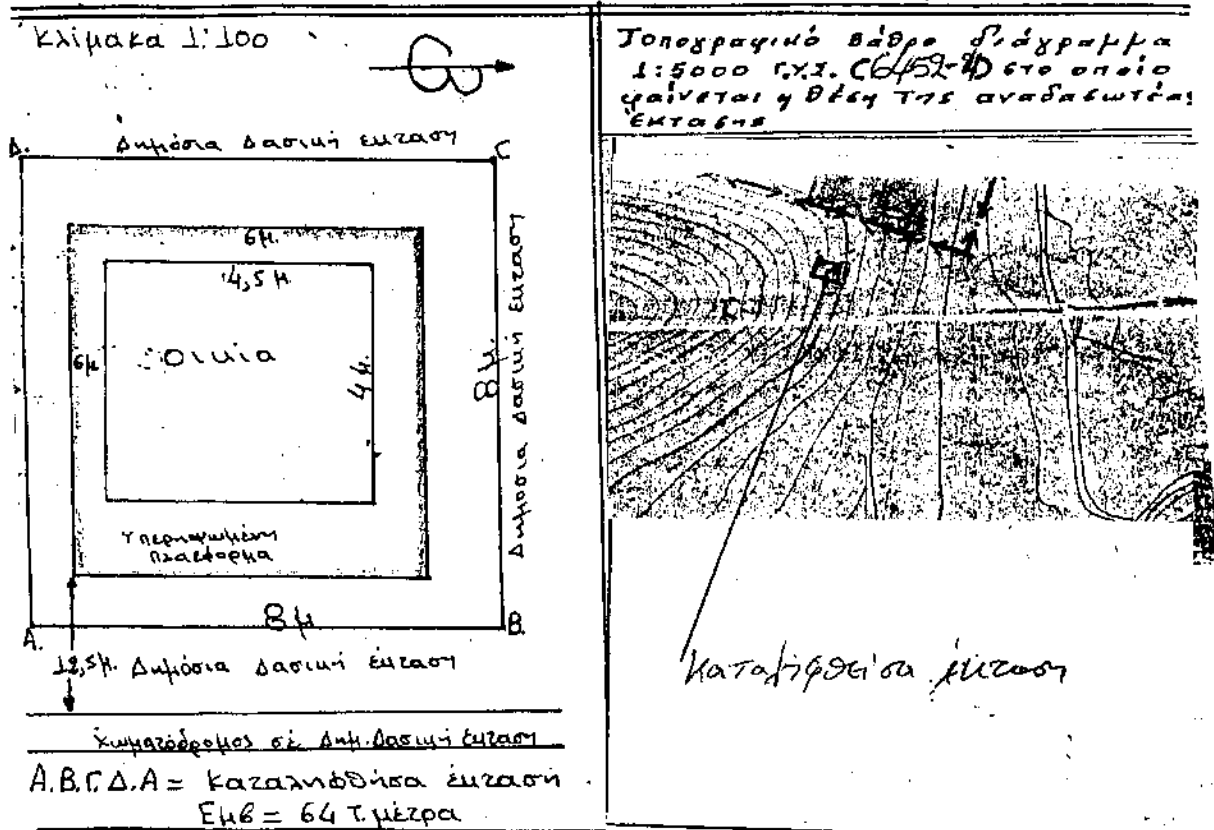 Κλίμακα 1:100
Δημόσια Δασική έκταση
Δ.
C
6μ.
4,5 μ.
6μ
οικία
4μ.
8μ.
Δημόσια Δασική έκταση
Υπερυψωμένη
πλατφόρμα
8μ
A.
B.
12,5μ. Δημόσια Δασική έκταση
χωματόδρομος σέ Δημ. Δασική έκταση
Α.Β.Γ.Δ.Α = Καταληφθήσα έκταση
Εμβ = 64 τ. μέτρα
Τοπογραφικό βάθρο διάγραμμα
1:5000 Γ.Υ.Σ. στο οποίο
φαίνεται η θέση της αναδασωτέας
έκτασης
Καταληφθείσα έκταση